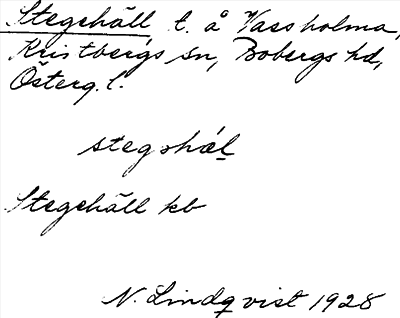 Stegehäll t. å Vassholma,
Kristbergs sn, Bobergs hd,
Österg. l.
stegshæl
Stegehäll kb
N. Lindqvist 1928